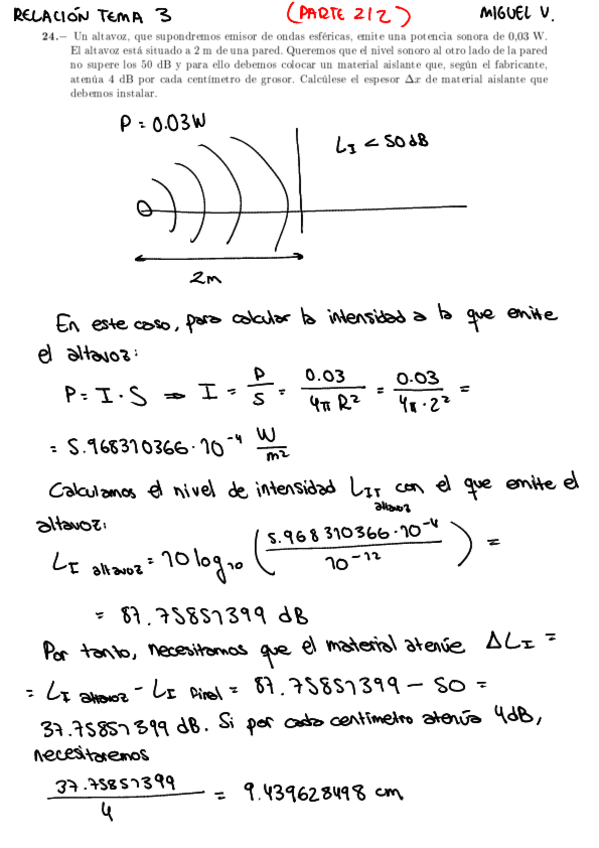 RELACIÓN TEMA 3 (PARTE 2/2) MIGUEL V.
24.– Un altavoz, que supondremos emisor de ondas esféricas, emite una potencia sonora de 0,03 W.
El altavoz está situado a 2 m de una pared. Queremos que el nivel sonoro al otro lado de la pared
no supere los 50 dB y para ello debemos colocar un material aislante que, según el fabricante,
atenúa 4 dB por cada centímetro de grosor. Calcúlese el espesor Δx de material aislante que
debemos instalar.
P = 0.03W
L_I < 50dB
2m
En este caso, para calcular la intensidad a la que emite
el altavoz:
P = I · S ⇒ I = P/S = 0.03/(4π R²) = 0.03/(4π · 2²) =
= 5.968310366 · 10⁻⁴ W/m²
Calculamos el nivel de intensidad L_II altavoz con el que emite el
altavoz:
L_I altavoz = 10 log₁₀ (5.968310366 · 10⁻⁴ / 10⁻¹²) =
= 87.75851399 dB
Por tanto, necesitamos que el material atenúe ΔL_I =
= L_I altavoz − L_I final = 87.75851399 − 50 =
37.75851399 dB. Si por cada centímetro atenúa 4dB,
necesitaremos
37.75851399 / 4 = 9.439628498 cm